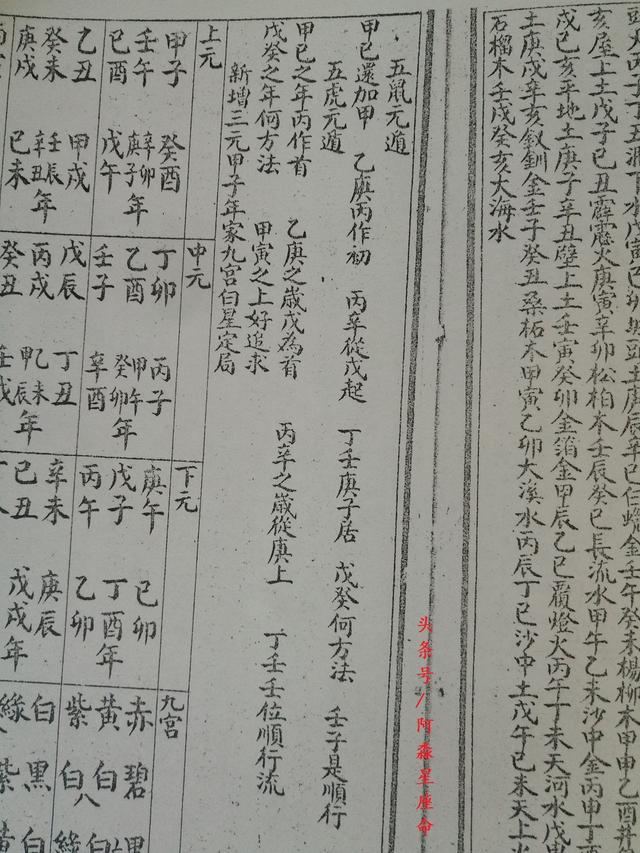 頭火丙子丁丑澗下水戊寅己卯城頭土庚辰辛巳白蠟金壬午癸未楊柳木甲申乙酉井
亥屋上土戊子己丑霹靂火庚寅辛卯松柏木壬辰癸巳長流水甲午乙未沙中金丙申丁
戌己亥平地土庚子辛丑壁上土壬寅癸卯金箔金甲辰乙巳覆燈火丙午丁未天河水戊
土庚戌辛亥釵釧金壬子癸丑桑柘木甲寅乙卯大溪水丙辰丁巳沙中土戊午己未天上火
石榴木壬戌癸亥大海水
头条号/阿淼星座命
五鼠元遁
甲己還加甲 乙庚丙作初 丙辛從戊起 丁壬庚子居 戊癸何方法 壬子是順行
五虎元遁
甲己之年丙作首 乙庚之歲戊為首 丙辛之歲從庚上 丁壬壬位順行流
戊癸之年何方法 甲寅之上好追求
新增三元甲子年家九宮白星定局
上元 中元 下元 九宮
甲子 癸酉 丁卯 丙子 庚午 己卯 赤碧
壬午 辛卯 庚子 年 乙酉 甲午 癸卯 年 戊子 丁酉 年 黃白
己酉 戊午 壬子 辛酉 丙午 乙卯 紫白
乙丑 甲戌 戊辰 丁丑 辛未 庚辰 白黑
癸未 壬辰 辛丑 年 丙戌 乙未 甲辰 年 己丑 戊戌 年 綠紫
庚戌 己未 癸丑 壬戌